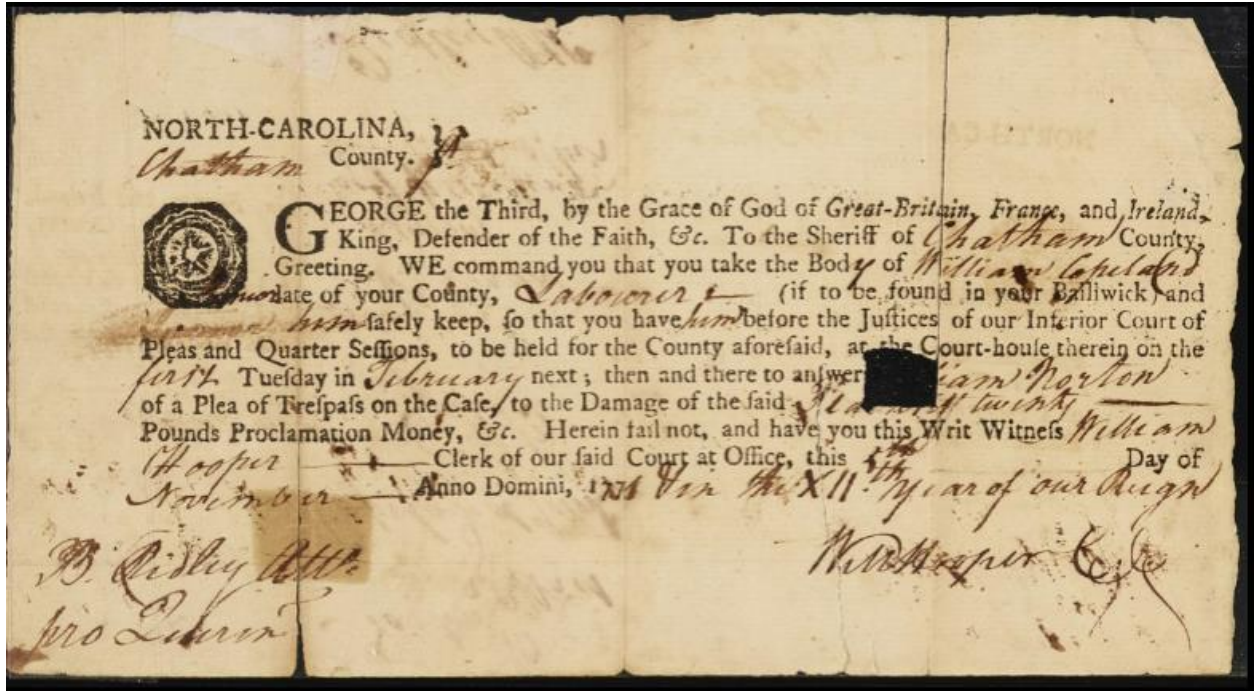 NORTH-CAROLINA, }
Chatham County. } ſſ.
GEORGE the Third, by the Grace of God of Great-Britain, France, and Ireland,
King, Defender of the Faith, &c. To the Sheriff of Chatham County,
Greeting. WE command you that you take the Body of William Copeland
late of your County, Labourer (if to be found in your Bailiwick) and
him ſafely keep, ſo that you have him before the Juſtices of our Inferior Court of
Pleas and Quarter Seſſions, to be held for the County aforeſaid, at the Court-houſe therein on the
firſt Tueſday in February next; then and there to anſwer liam Norton
of a Plea of Treſpaſs on the Caſe, to the Damage of the ſaid twenty
Pounds Proclamation Money, &c. Herein fail not, and have you this Writ Witneſs William
Hooper Clerk of our ſaid Court at Office, this 5th Day of
November Anno Domini, 1771 & in the XIIth Year of our Reign
Will Hooper C.C.
B. Ridley Atto.
pro Querin